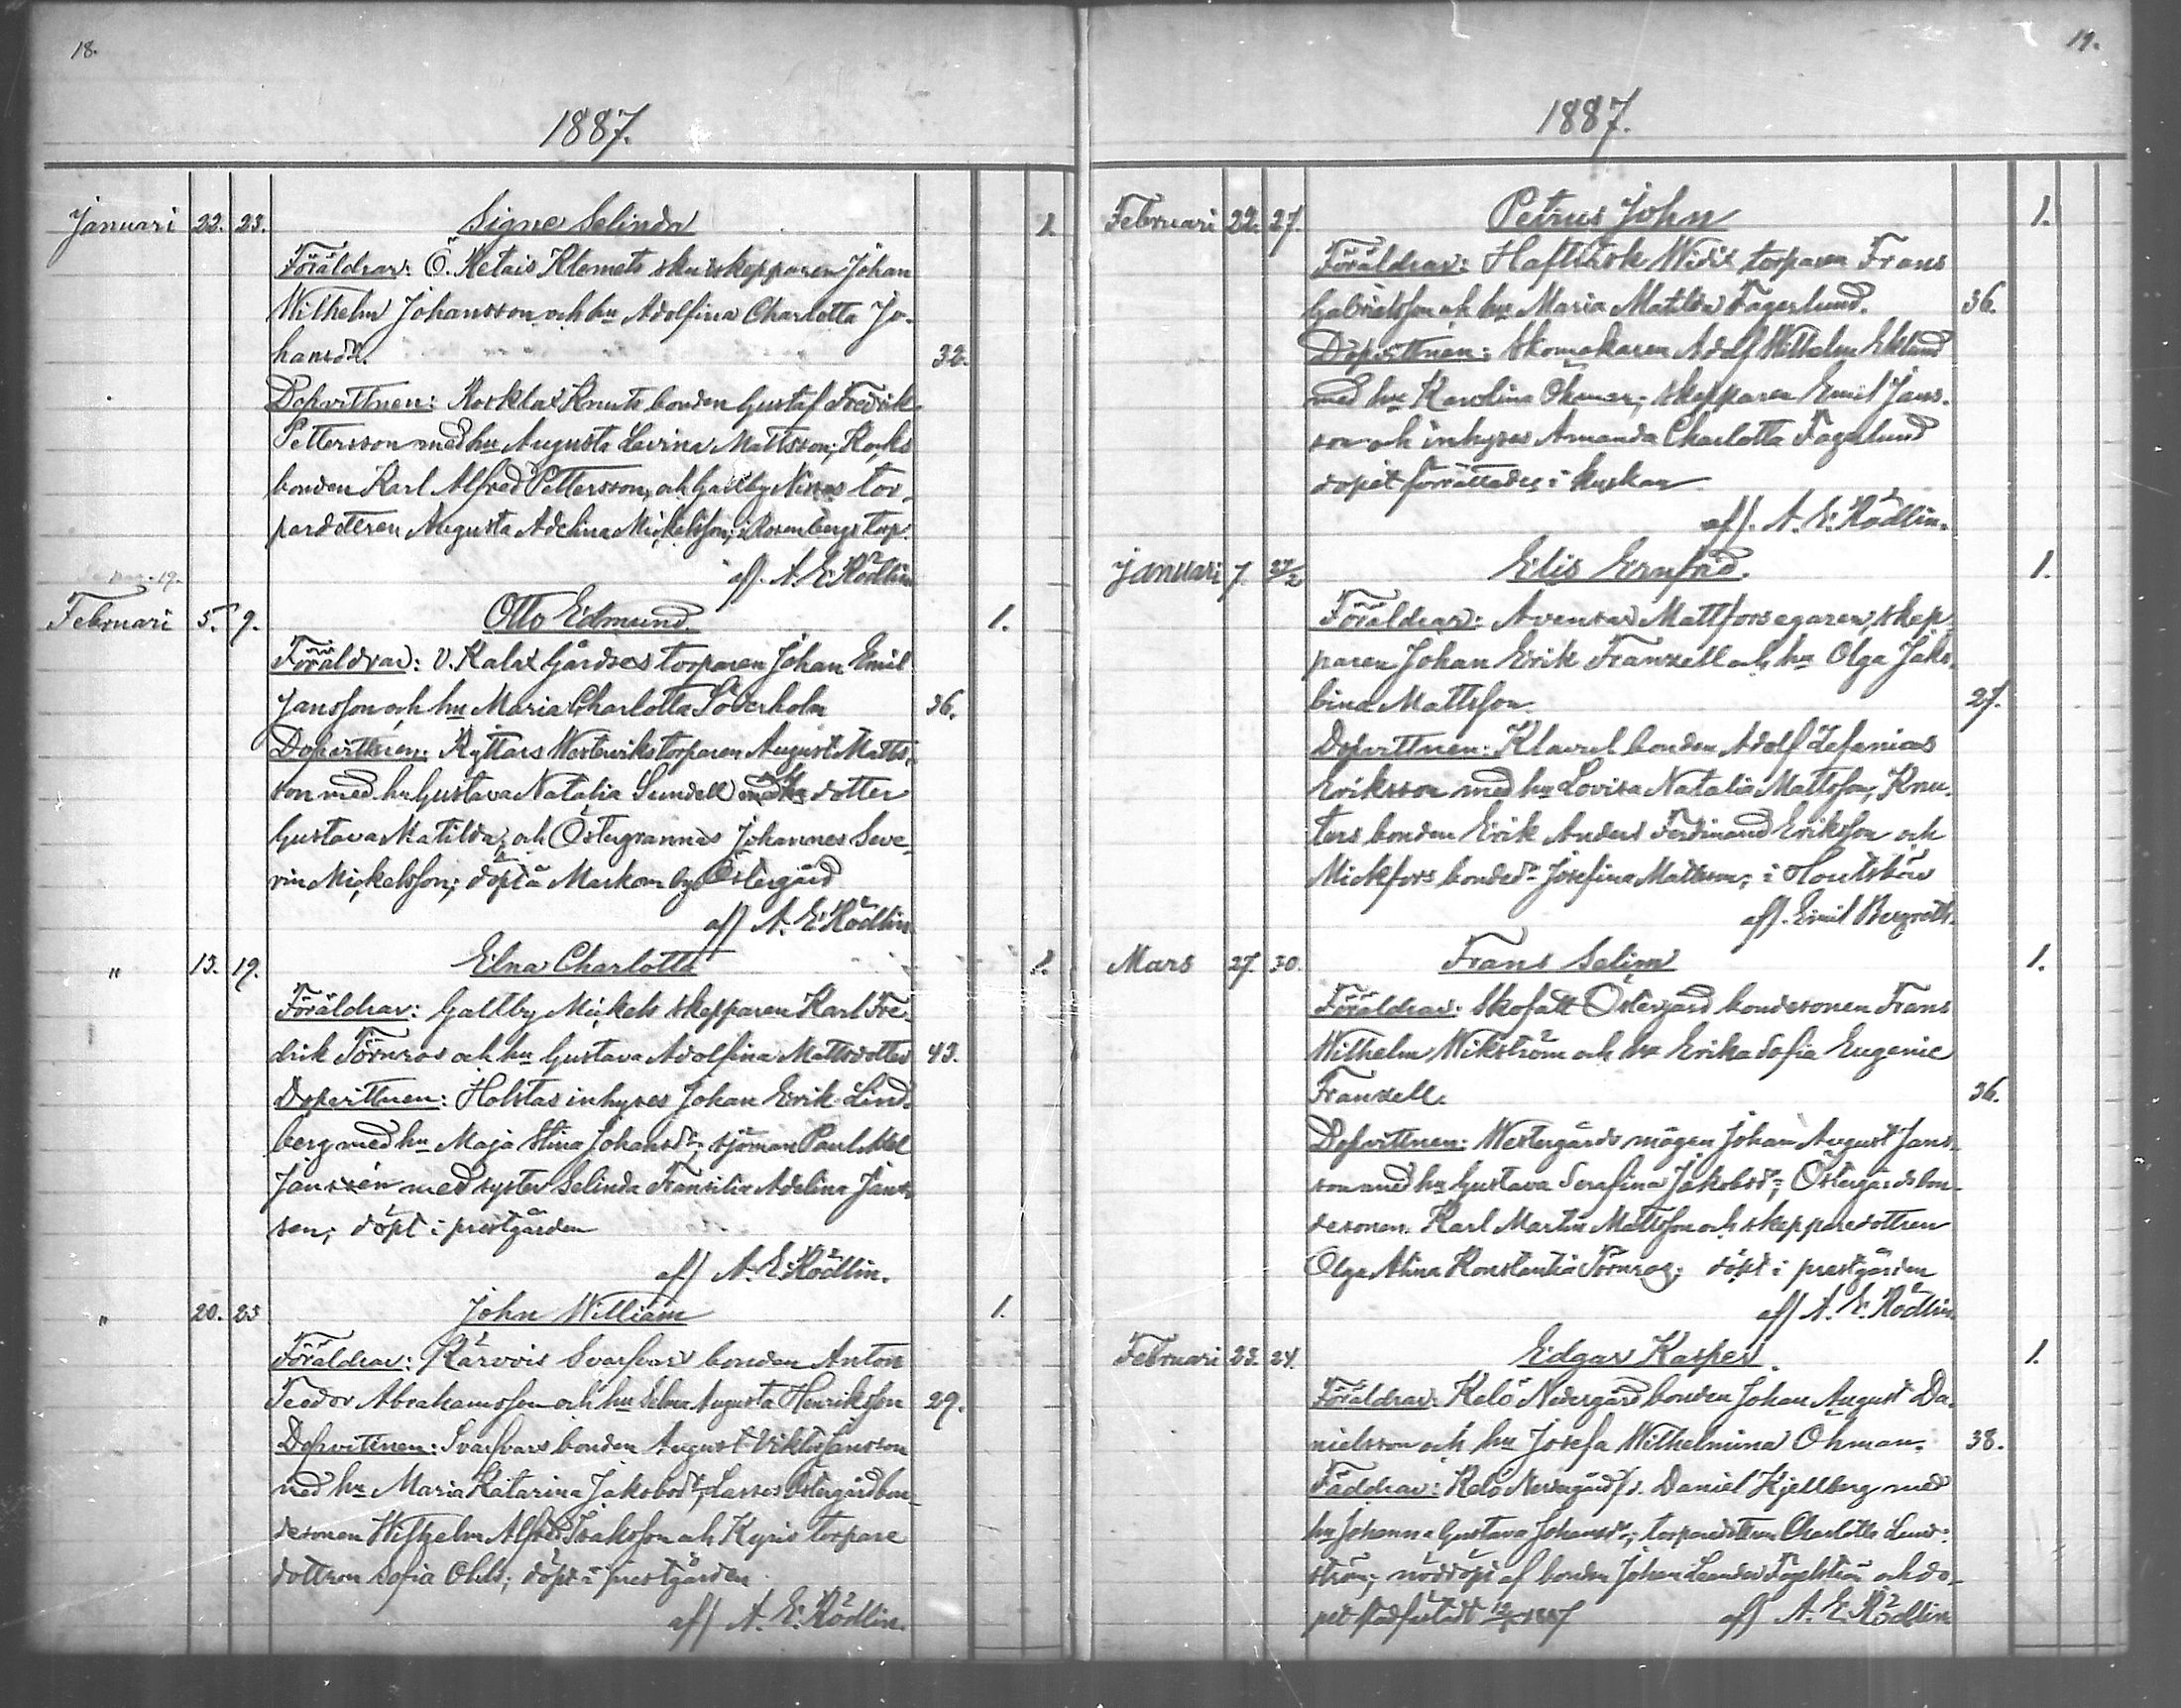 18.
1887.
Januari 22. 23. Signe Selinda 1.
Föräldrar: Ö. Metais Klemets skeppare Johan
Wilhelm Johansson och hu Adolfina Charlotta Jo-
hansdr. 32.
Dopvittnen: Rosklax Knuts bonden Gustaf Fredrik
Pettersson med hu Augusta Lovina Mattsson;
bonden Karl Alfred Pettersson, och Galtby Ninas tor-
paredottren Augusta Adelina Mickelsson; i Rosenbergs torp.
aff. A. E. Rödlin
Februari 5. 9. Otto Edmund. 1.
Föräldrar: V. Kalax Gårdses torparen Johan Emil
Jansson och hu Maria Charlotta Söderholm 36.
Dopvittnen: Ryttars Westerviks torparen August Matts-
son med hu Gustava Natalia Sundell dotter
Gustava Matilda; och Östergrannas Johannes Seve-
rin Mickelsson; döpt å Markomby Östergård
aff A. E. Rödlin
" 13. 19. Elna Charlotta 1.
Föräldrar: Galtby Mickels skepparen Karl Fre-
drik Törnros och hu Gustava Adolfina Mattsdotter 43.
Dopvittnen: Holstas inhyses Johan Erik Lind-
berg med hu Maja Stina Johansdr; sjöman Paul Axel
Janssén med syster Selinda Fransilia Adelina Jans-
sen; döpt i prestgården
aff A. E. Rödlin.
" 20. 23 John William 1.
Föräldrar: Kärvois Svarfvars bonden Anton
Teodor Abrahamsson och hu Selma Augusta Henriksson 29.
Dopvittnen: Svarfvars bonden August Viktor Jansson
med hu Maria Katarina Jakobsdr, Lasses Östergård bon-
desonen Wilhelm Alfred Isaksson och Kyris torpare
dottren Sofia Ohls; döpt i prestgården
aff A. E. Rödlin.
19.
1887.
Februari 22. 27. Petrus John 1.
Föräldrar: Haftersök Widix torparen Frans
Gabrielsson och hu Maria Matilda Fagerlund. 36.
Dopvittnen: Skomakaren Adolf Wilhelm Eklund
med hu Karolina Öhman; skepparen Emil Jans-
son och inhyses Amanda Charlotta Fagerlund
dopet förrättades i kyrkan
aff. A. E. Rödlin.
Januari 7. 27/2 Elis Ernfrid. 1.
Föräldrar: Avensar Mattfors egaren, skep-
paren Johan Erik Franzell och hu Olga Jako-
bina Mattsson. 27.
Dopvittnen: Klavul bonden Adolf Zefanias
Eriksson med hu Lovisa Natalia Mattsson, Knu-
ters bonden Erik Anders Ferdinand Eriksson och
Mickfors bondedr Josefina Mattsson; i Houtskär
aff. Emil Bergroth.
Mars 27. 30. Frans Selim 1.
Föräldrar: Skofatt Östergård bondesonen Frans
Wilhelm Wikström och hu Erika Sofia Eugenie
Franzell. 36.
Dopvittnen: Westergårds mågen Johan August Jans-
son med hu Gustava Serafina Jakobsdr; Östergårds bon-
desonen Karl Martin Mattsson och skepparedottren
Olga Alina Konstantia Törnros; döpt i prestgården
aff A. E. Rödlin
Februari 23. 24. Edgar Kasper. 1.
Föräldrar: Kelö Nedergård bonden Johan August Da-
nielsson och hu Josefa Wilhelmina Öhman. 38.
Faddrar: Kelö Nedergård Daniel Kjellberg med
hu Johanna Gustava Johansdr; torparedottren Charlotta Lund-
ström; nöddöpt af bonden Johan Leander Fagelström och do-
pet stadfästadt 1887 aff A. E. Rödlin